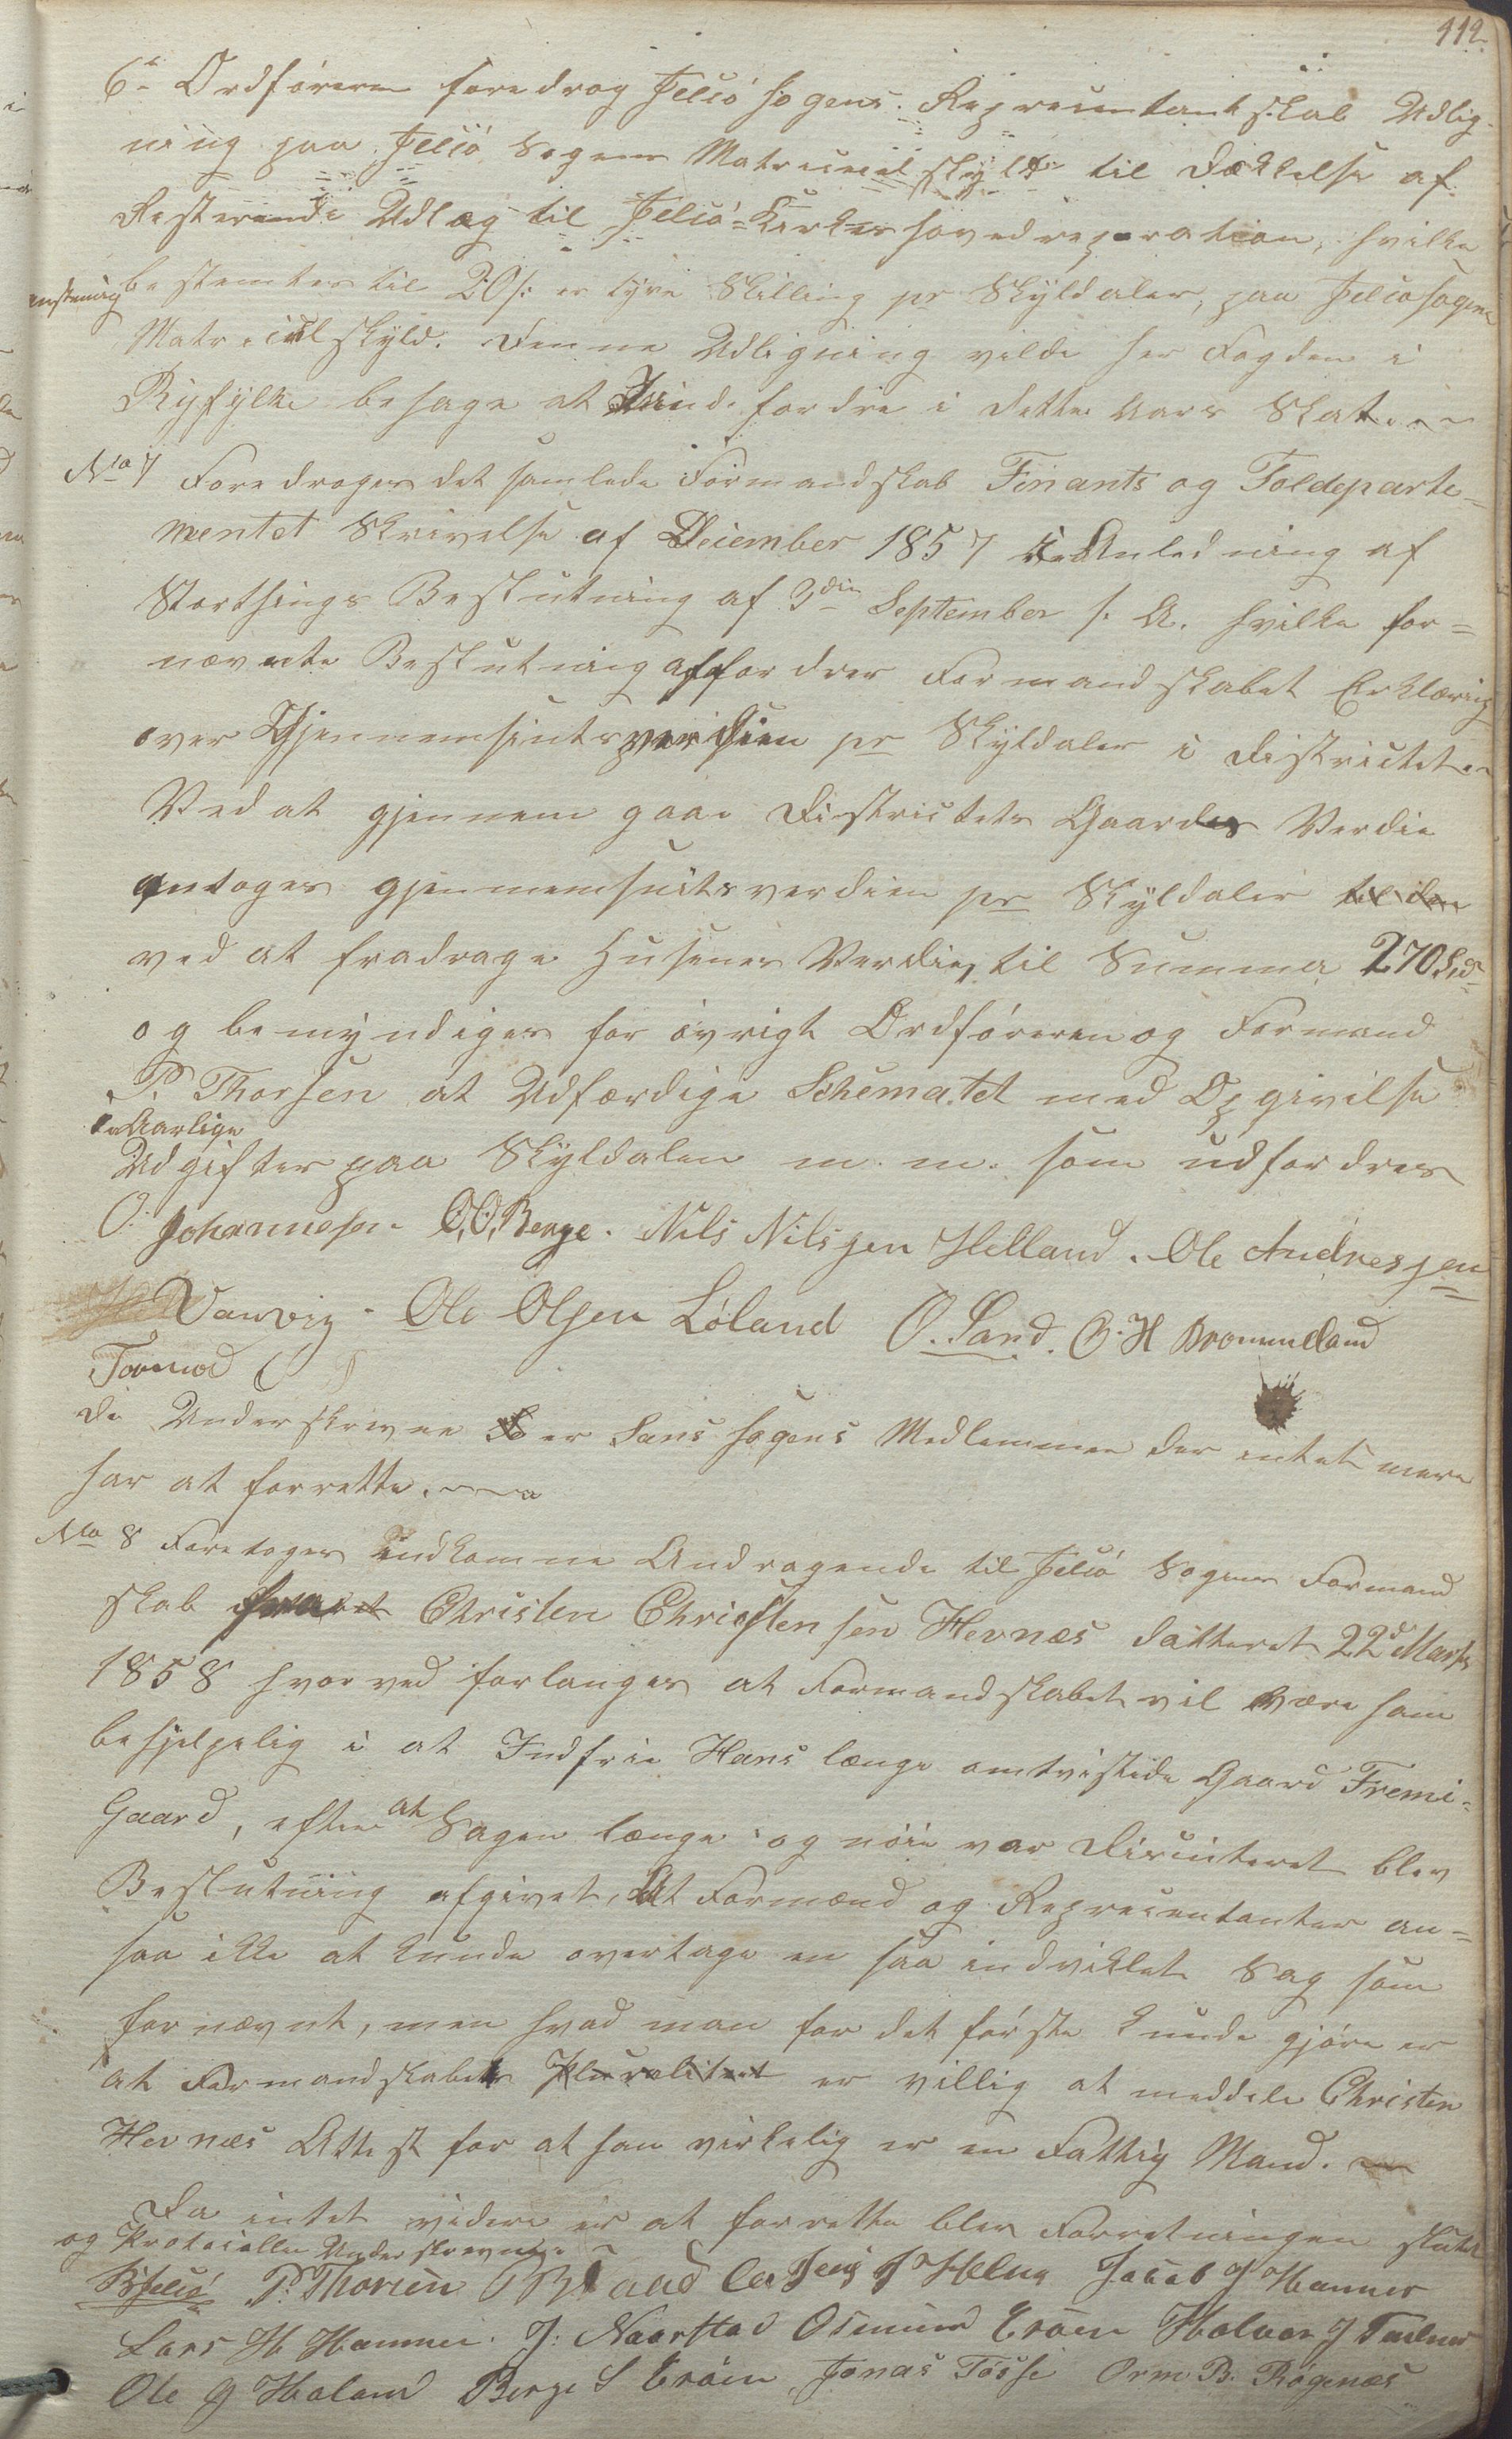 112.
6te Ordføreren foredrog Jelsø Sogens Representantskab Udlig-
ning paa Jelsø Sogens Matriculskyld til Dækkelse af
Resterende Udlæg til Jelsø-Kirkes hovedreparation, hvilke
enstemig bestemtes til 20 s: er tyve Skilling pr Skyldaler, paa Jelsø Sogens
Matriculskyld. Denne Udligning vilde Her Fogden i
Ryfylke behage at Indfordre i dette Aars Skat.
No 7 Foredroges det samlede Formandskab Finants og Tolddeparte-
mentet Skrivelse af December 1857 i Anledning af
Storthings Beslutning af 3die September s. A. hvilke for-
nævnte Beslutning affordrer Formandskabet Erklæring
over Gjennemsnitsverdien pr Skyldaler i Districtet.
Ved at gjennemgaae Districtets Gaardes Verdie
antoges gjennemsnitsverdien pr Skyldaler til den
ved at fradrage Husenes Verdie, til Summa 270 Spd
og bemyndiges for øvrigt Ordføreren og Formand
P. Thorsen at Udfærdige Schematet med Opgivelse
Aarlige
Udgifter paa Skyldalen m. m. som udfordres
O. Johannesen O. O. Berge. Nils Nilsen Helland. Ole Andressen
Vanvig. Ole Olsen Løland O. Sand. O. H Brommeland
Tormod
De Underskrevne er Sands Sogens Medlemmer der intet mere
har at forrette.
No 8 Foretoges indkomne Andragende til Jelsø Sogens Formand
skab fra Christen Christensen Hevnæs datteret 22d Marts
1858 hvorved forlanges at Formandskabet vil være ham
behjelpelig i at Indfrie Hans længe omtvistede Gaard Fremi-
Gaard, efter at Sagen længe og nøie var Discuteret blev
Beslutning afgivet, At Formænd og Representanter an-
saa ikke at kunde overtage en saa indviklet Sag som
fornævnt, men hvad man for det første kunde gjøre er
at Formandskabets Pluralitet er villig at meddele Christen
Hevnæs Attest for at han virkelig er en Fattig Mand.
Da intet videre er at forrette blev Forretningen slutet
og Protocollen Underskreven.
P. Thorsen Jacob J Hammer
Lars H Hammer. J. Naarstad Osmund Eröen Halvor J
Ole G Haland Berge S Eröen Jonas Tøsse Orm B. Røgenæs